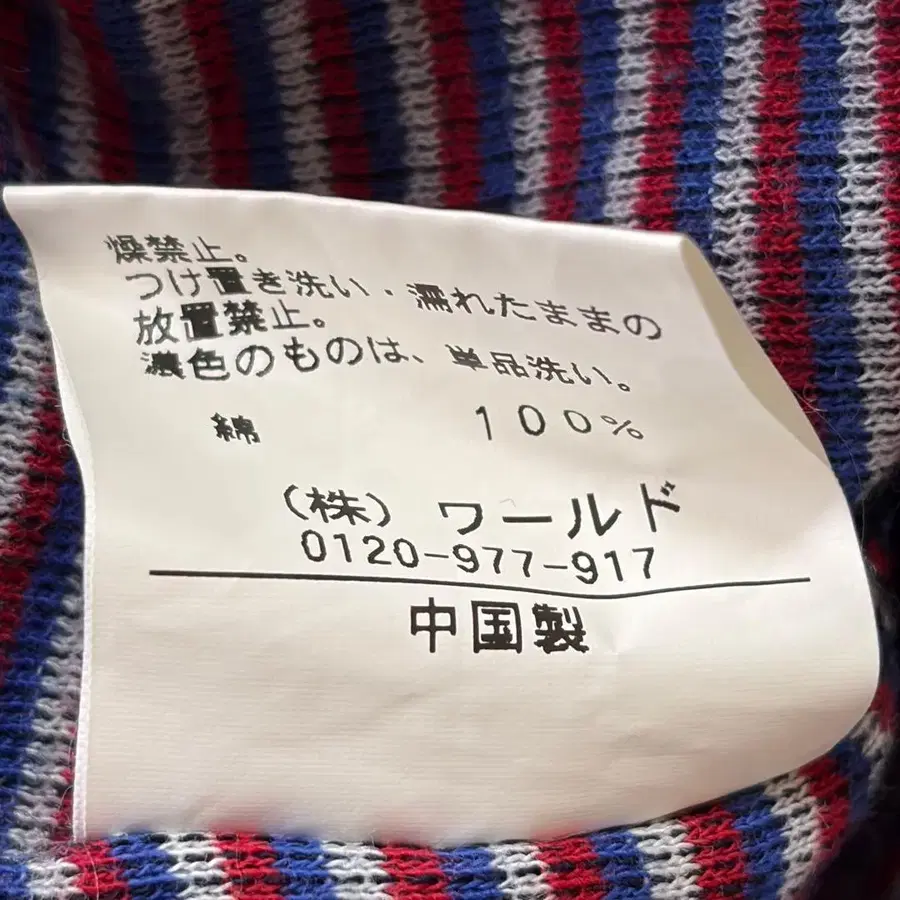 燥禁止。
つけ置き洗い・濡れたままの
放置禁止。
濃色のものは、単品洗い。
綿 100%
(株) ワールド
0120-977-917
中国製